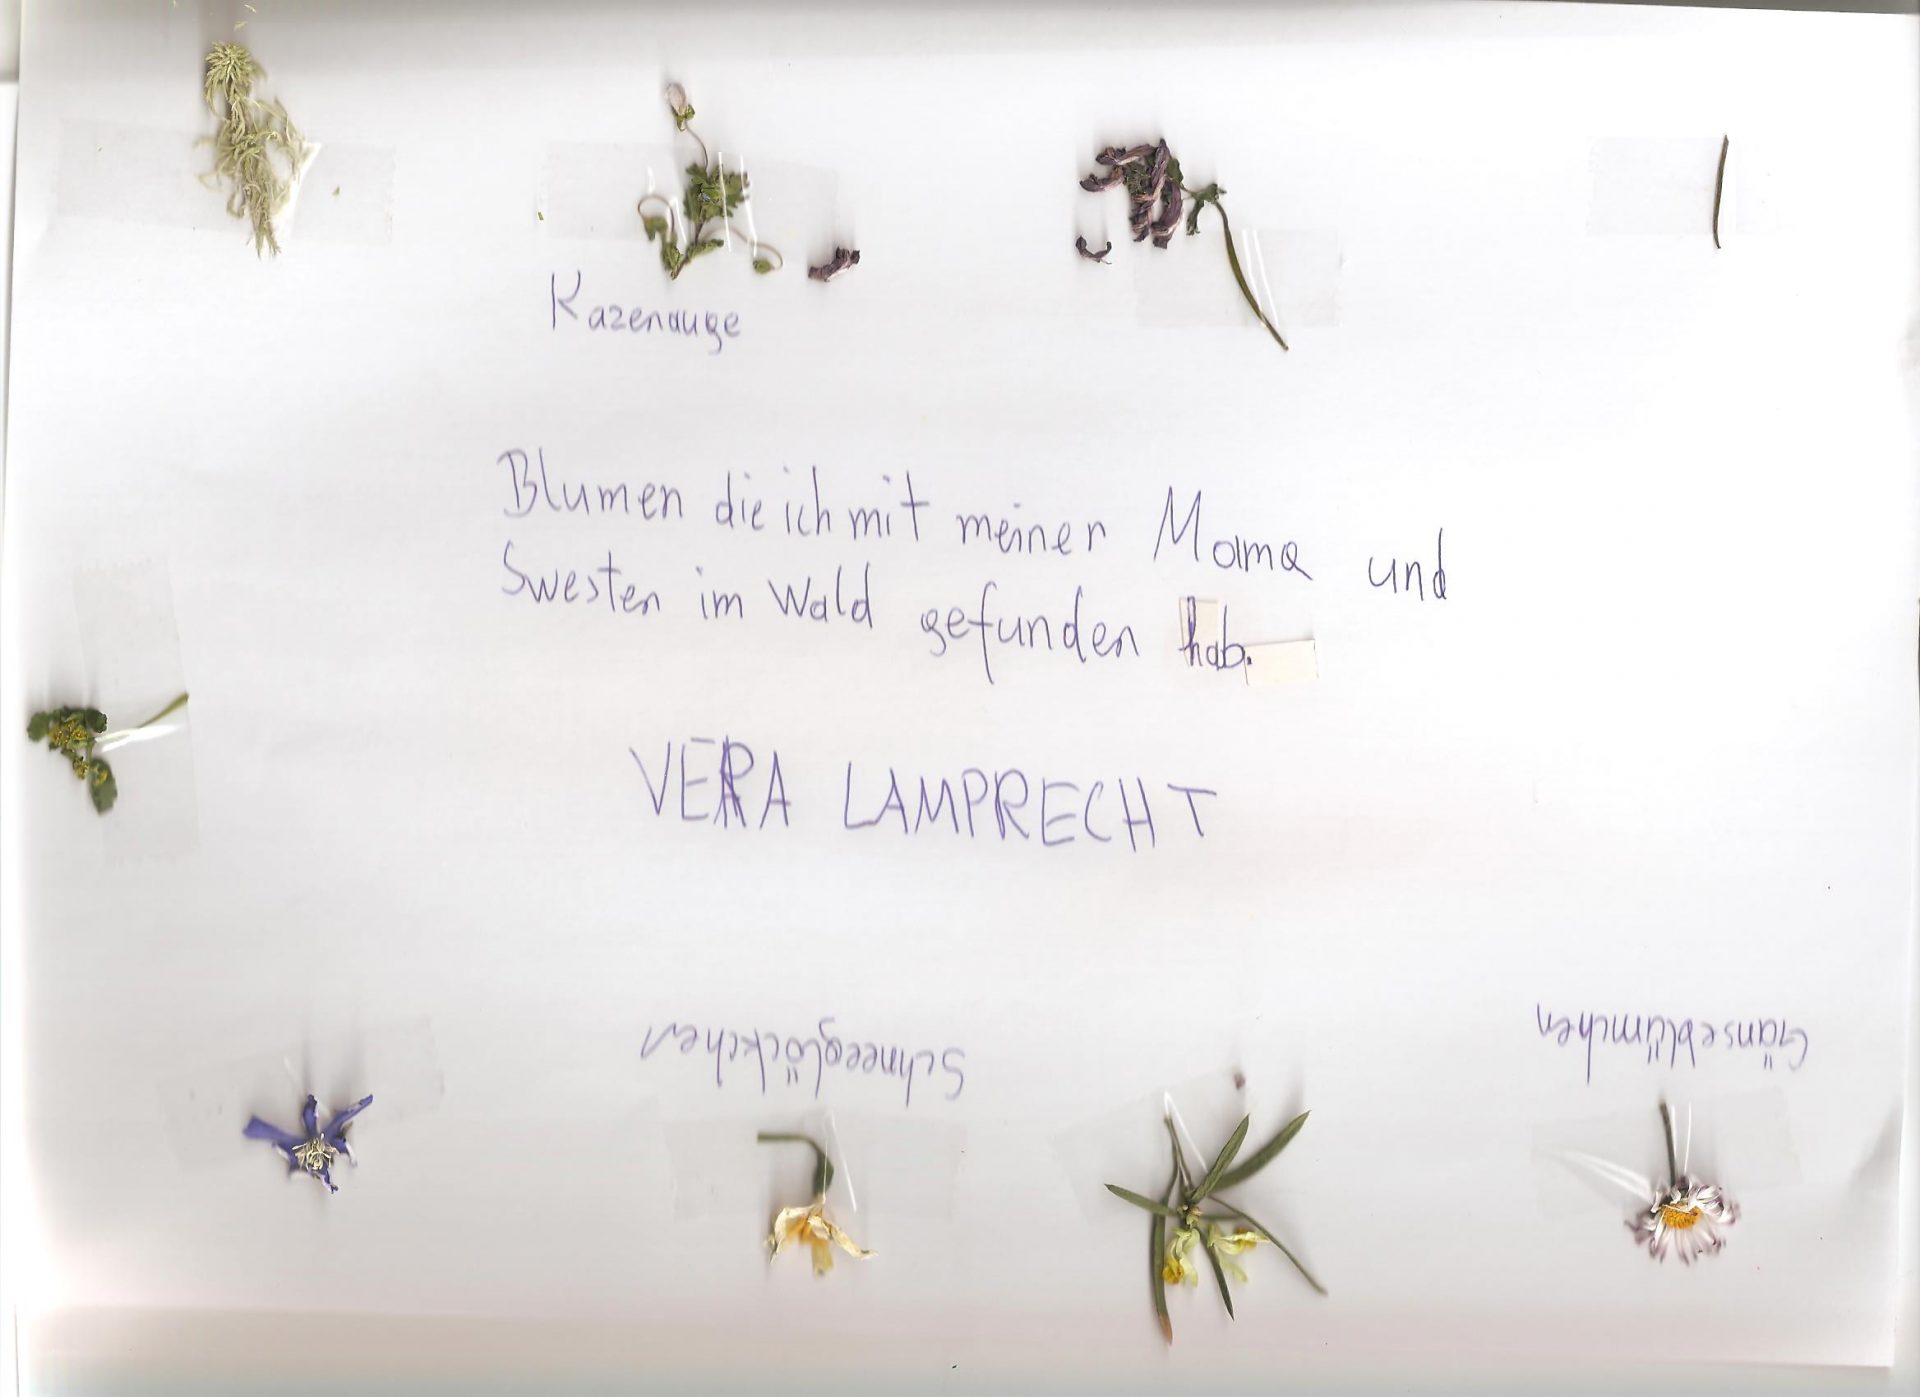 Kazenauge
Blumen die ich mit meiner Mama und
Swesten im Wald gefunden hab.
VERA LAMPRECHT
Schneeglöckchen
Gänseblümchen